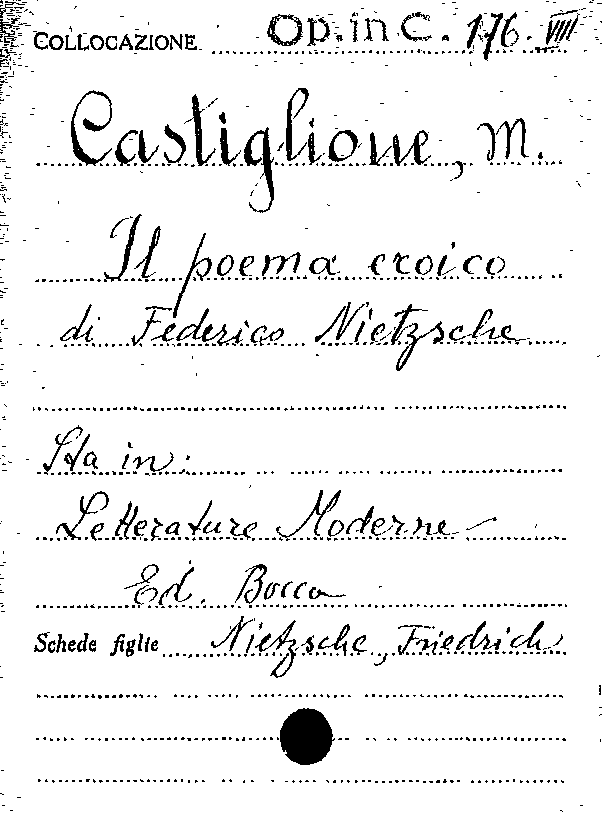 COLLOCAZIONE Op. in C. 176. VIII
Castiglione, M.
Il poema eroico
di Federico Nietzsche
Sta in:
Letterature Moderne
Ed. Bocca
Schede figlie Nietzsche, Friedrich